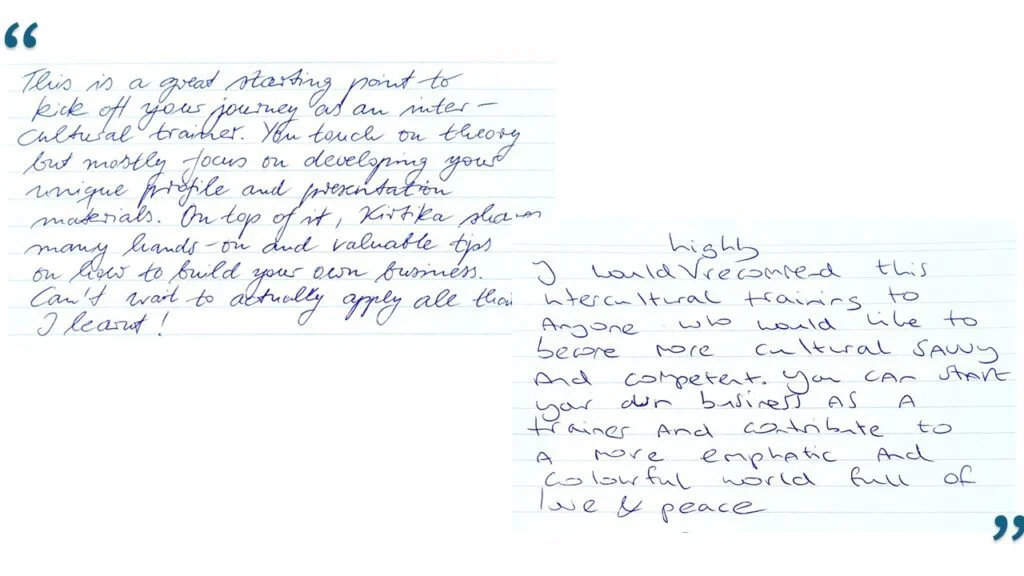 “
This is a great starting point to
kick off your journey as an inter-
cultural trainer. You touch on theory
but mostly focus on developing your
unique profile and presentation
materials. On top of it, Kirtika shares
many hands-on and valuable tips
on how to build your own business.
Can't wait to actually apply all that
I learnt!
highly
I would V recommend this
intercultural training to
Anyone who would like to
become more cultural savvy
And competent. You can start
your own business as a
trainer and contribute to
a more emphatic and
colourful world full of
love & peace
”